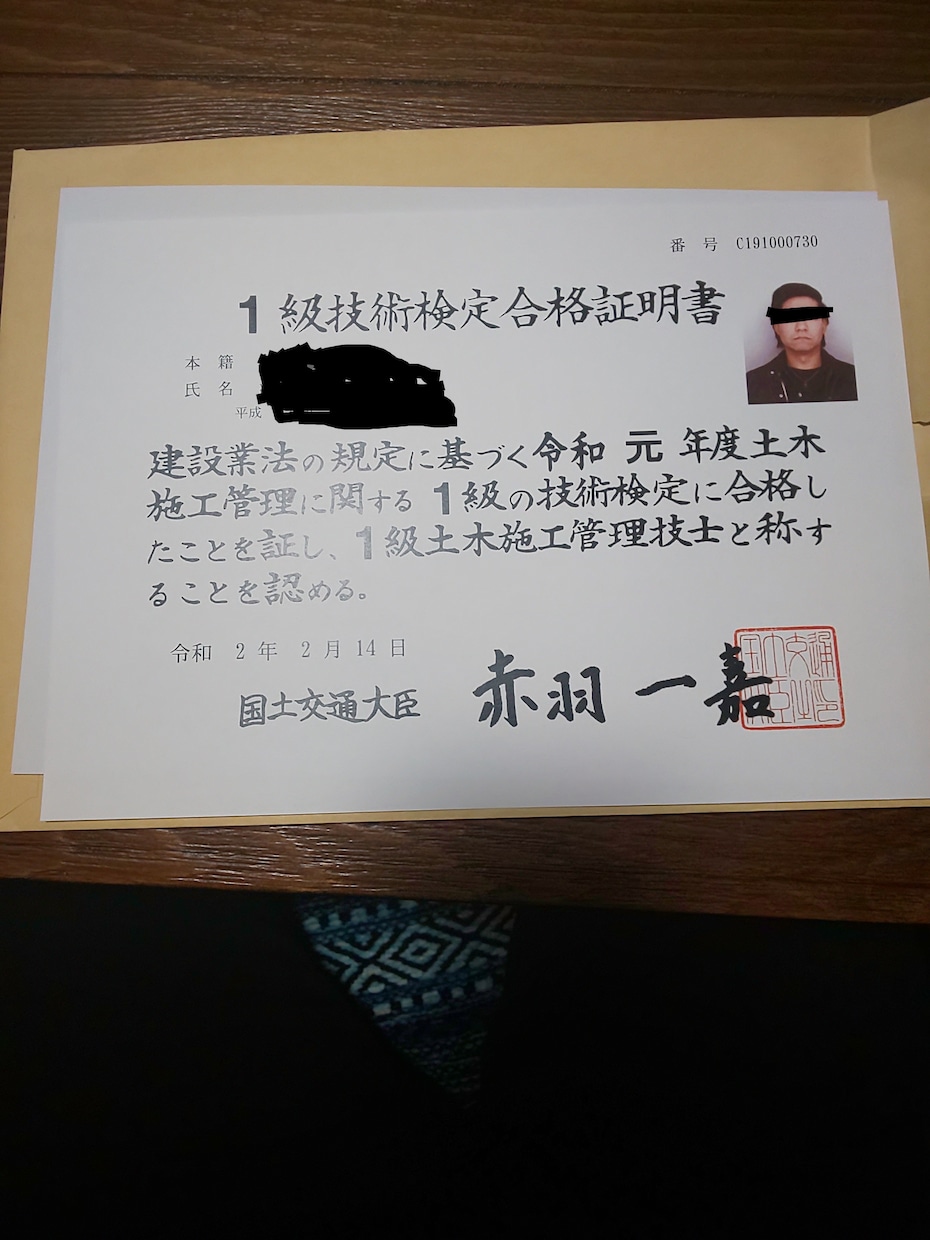 番 号 C191000730
1 級技術検定合格証明書
本 籍
氏 名
平成
建設業法の規定に基づく令和 元 年度土木
施工管理に関する 1級の技術検定に合格し
たことを証し、1級土木施工管理技士と称す
ることを認める。
令和 2 年 2 月 14 日
国土交通大臣 赤羽 一嘉